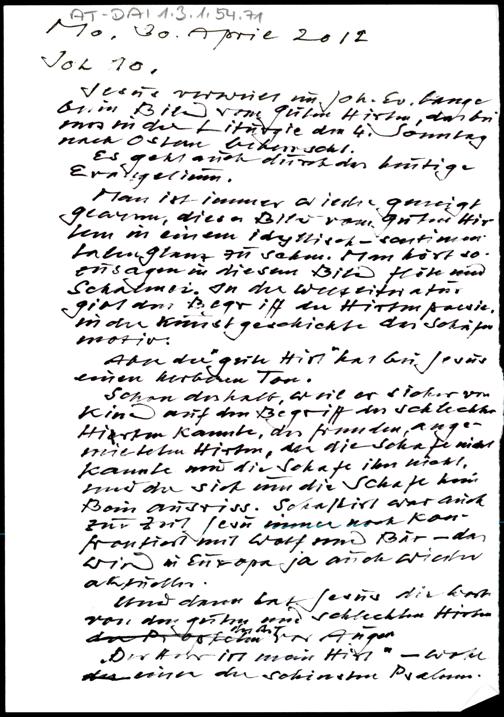 AT-DAI 1.3.1.54.71
Mo, 30. April 2012
Joh 10.
Jesus verweilt im Joh. Ev. lange
bei Bild vom guten Hirten, das bei
uns in der Liturgie den 4. Sonntag
nach Ostern beherrscht.
Es geht auch durch das heutige
Evangelium.
Man ist immer wieder geneigt
gewesen, dieses Bild vom guten Hir
ten in einem idyllisch-sentimen
talen Glanz zu sehen. Man hört so-
zusagen in diesem Bild Flöte und
Schalmei. In der Weltliteratur
gibt den Begriff der Hirtenpoesie,
in der Kunstgeschichte das Schäfer
motiv.
Aber der "gute Hirt" hat bei Jesus
einen herberen Ton.
Schon deshalb, weil er sicher von
Kind auf den Begriff des schlechten
Hirten kannte, des fremden, ange-
mieteten Hirten, der die Schafe nicht
kannte und die Schafe ihn nicht,
und der sich um die Schafe kein
Bein ausriss. Schafhirt war auch
zur Zeit Jesu immer noch kon-
frontiert mit Wolf und Bär - das
wird in Europa ja auch wieder
aktueller.
Und dann hat Jesus die Worte
von den guten und schlechten Hirten
der Propheten vor Augen
"Der Herr ist mein Hirt" - wohl
der einer der schönsten Psalmen.